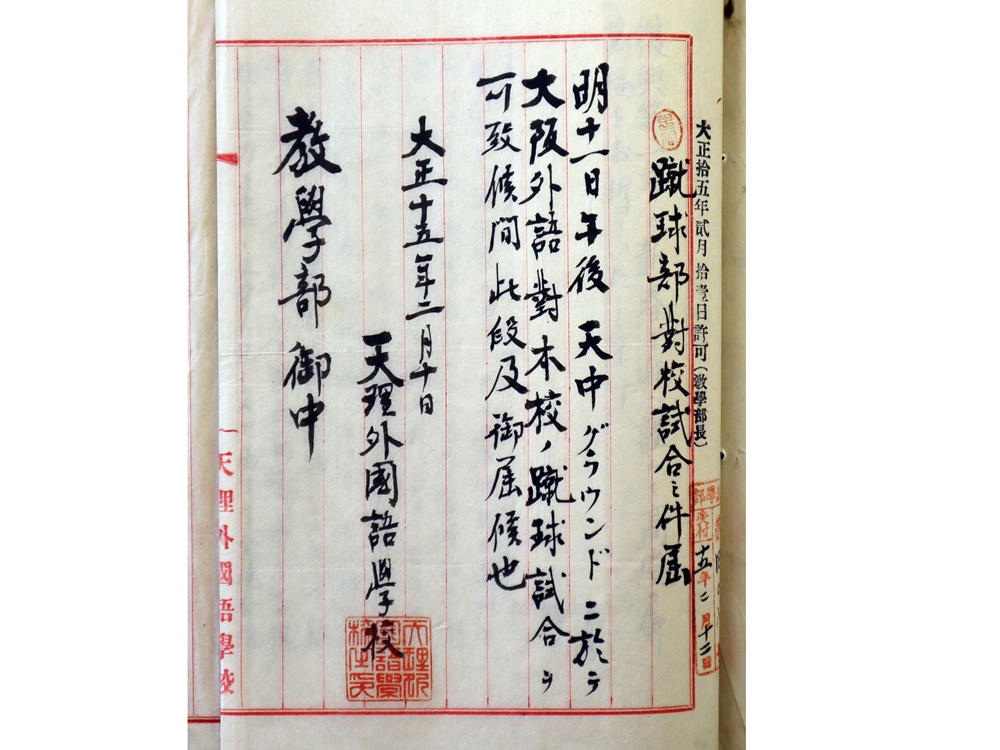 大正拾五年貳月拾壹日許可(敎學部長)
十五年二月十二日
蹴球部對校試合ニ件届
明十一日午後天中グラウンドニ於テ
大阪外語對本校ノ蹴球試合ヲ
可致候間此段及御届候也
大正十五年二月十日
天理外國語學校
教學部御中
天理外國語學校